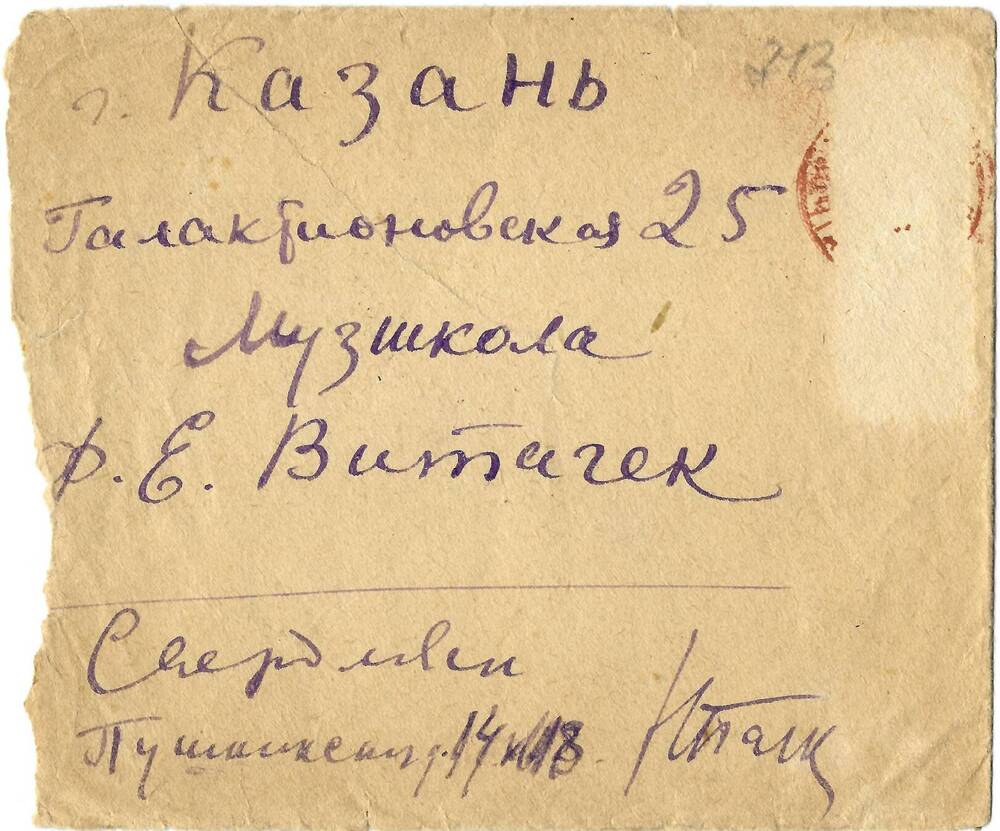 213
г. Казань
Галактионовская 25
Музшкола
Ф. Е. Витачек
Свердловск
Пушкинская 14